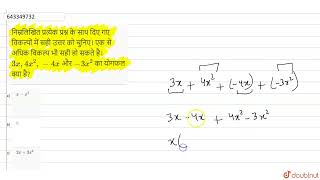 643349732
निम्नलिखित प्रत्येक प्रश्न के साथ दिए गए
विकल्पों में सही उत्तर को चुनिए। एक से
अधिक विकल्प भी सही हो सकते हैं।
3x, 4x², −4x और −3x² का योगफल
क्या है?
3x + 4x² + (-4x) + (-3x²)
3x - 4x + 4x² - 3x²
x(
doubtnut